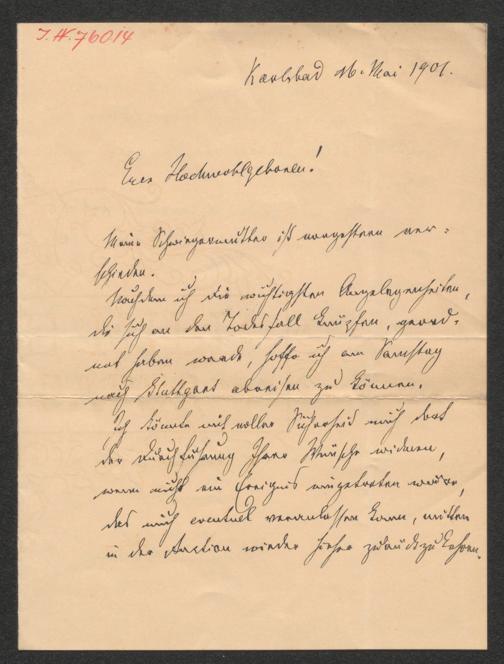 J.N. 76014
Karlsbad 16. Mai 1901.
Euer Hochwohlgeboren!
Meine Schwiegermutter ist vorgestern ver-
schieden.
Nachdem ich die wichtigsten Angelegenheiten,
die sich an den Todesfall knüpfen, geord-
net haben werde, hoffe ich am Samstag
nach Stuttgart abreisen zu können.
Ich könnte mit voller Sicherheit mich dort
der Durchführung Ihrer Wünsche widmen,
wenn nicht ein Ereignis eingetreten wäre,
das mich eventuel veranlassen kann, mitten
in der Action wieder hieher zurückzukehren.